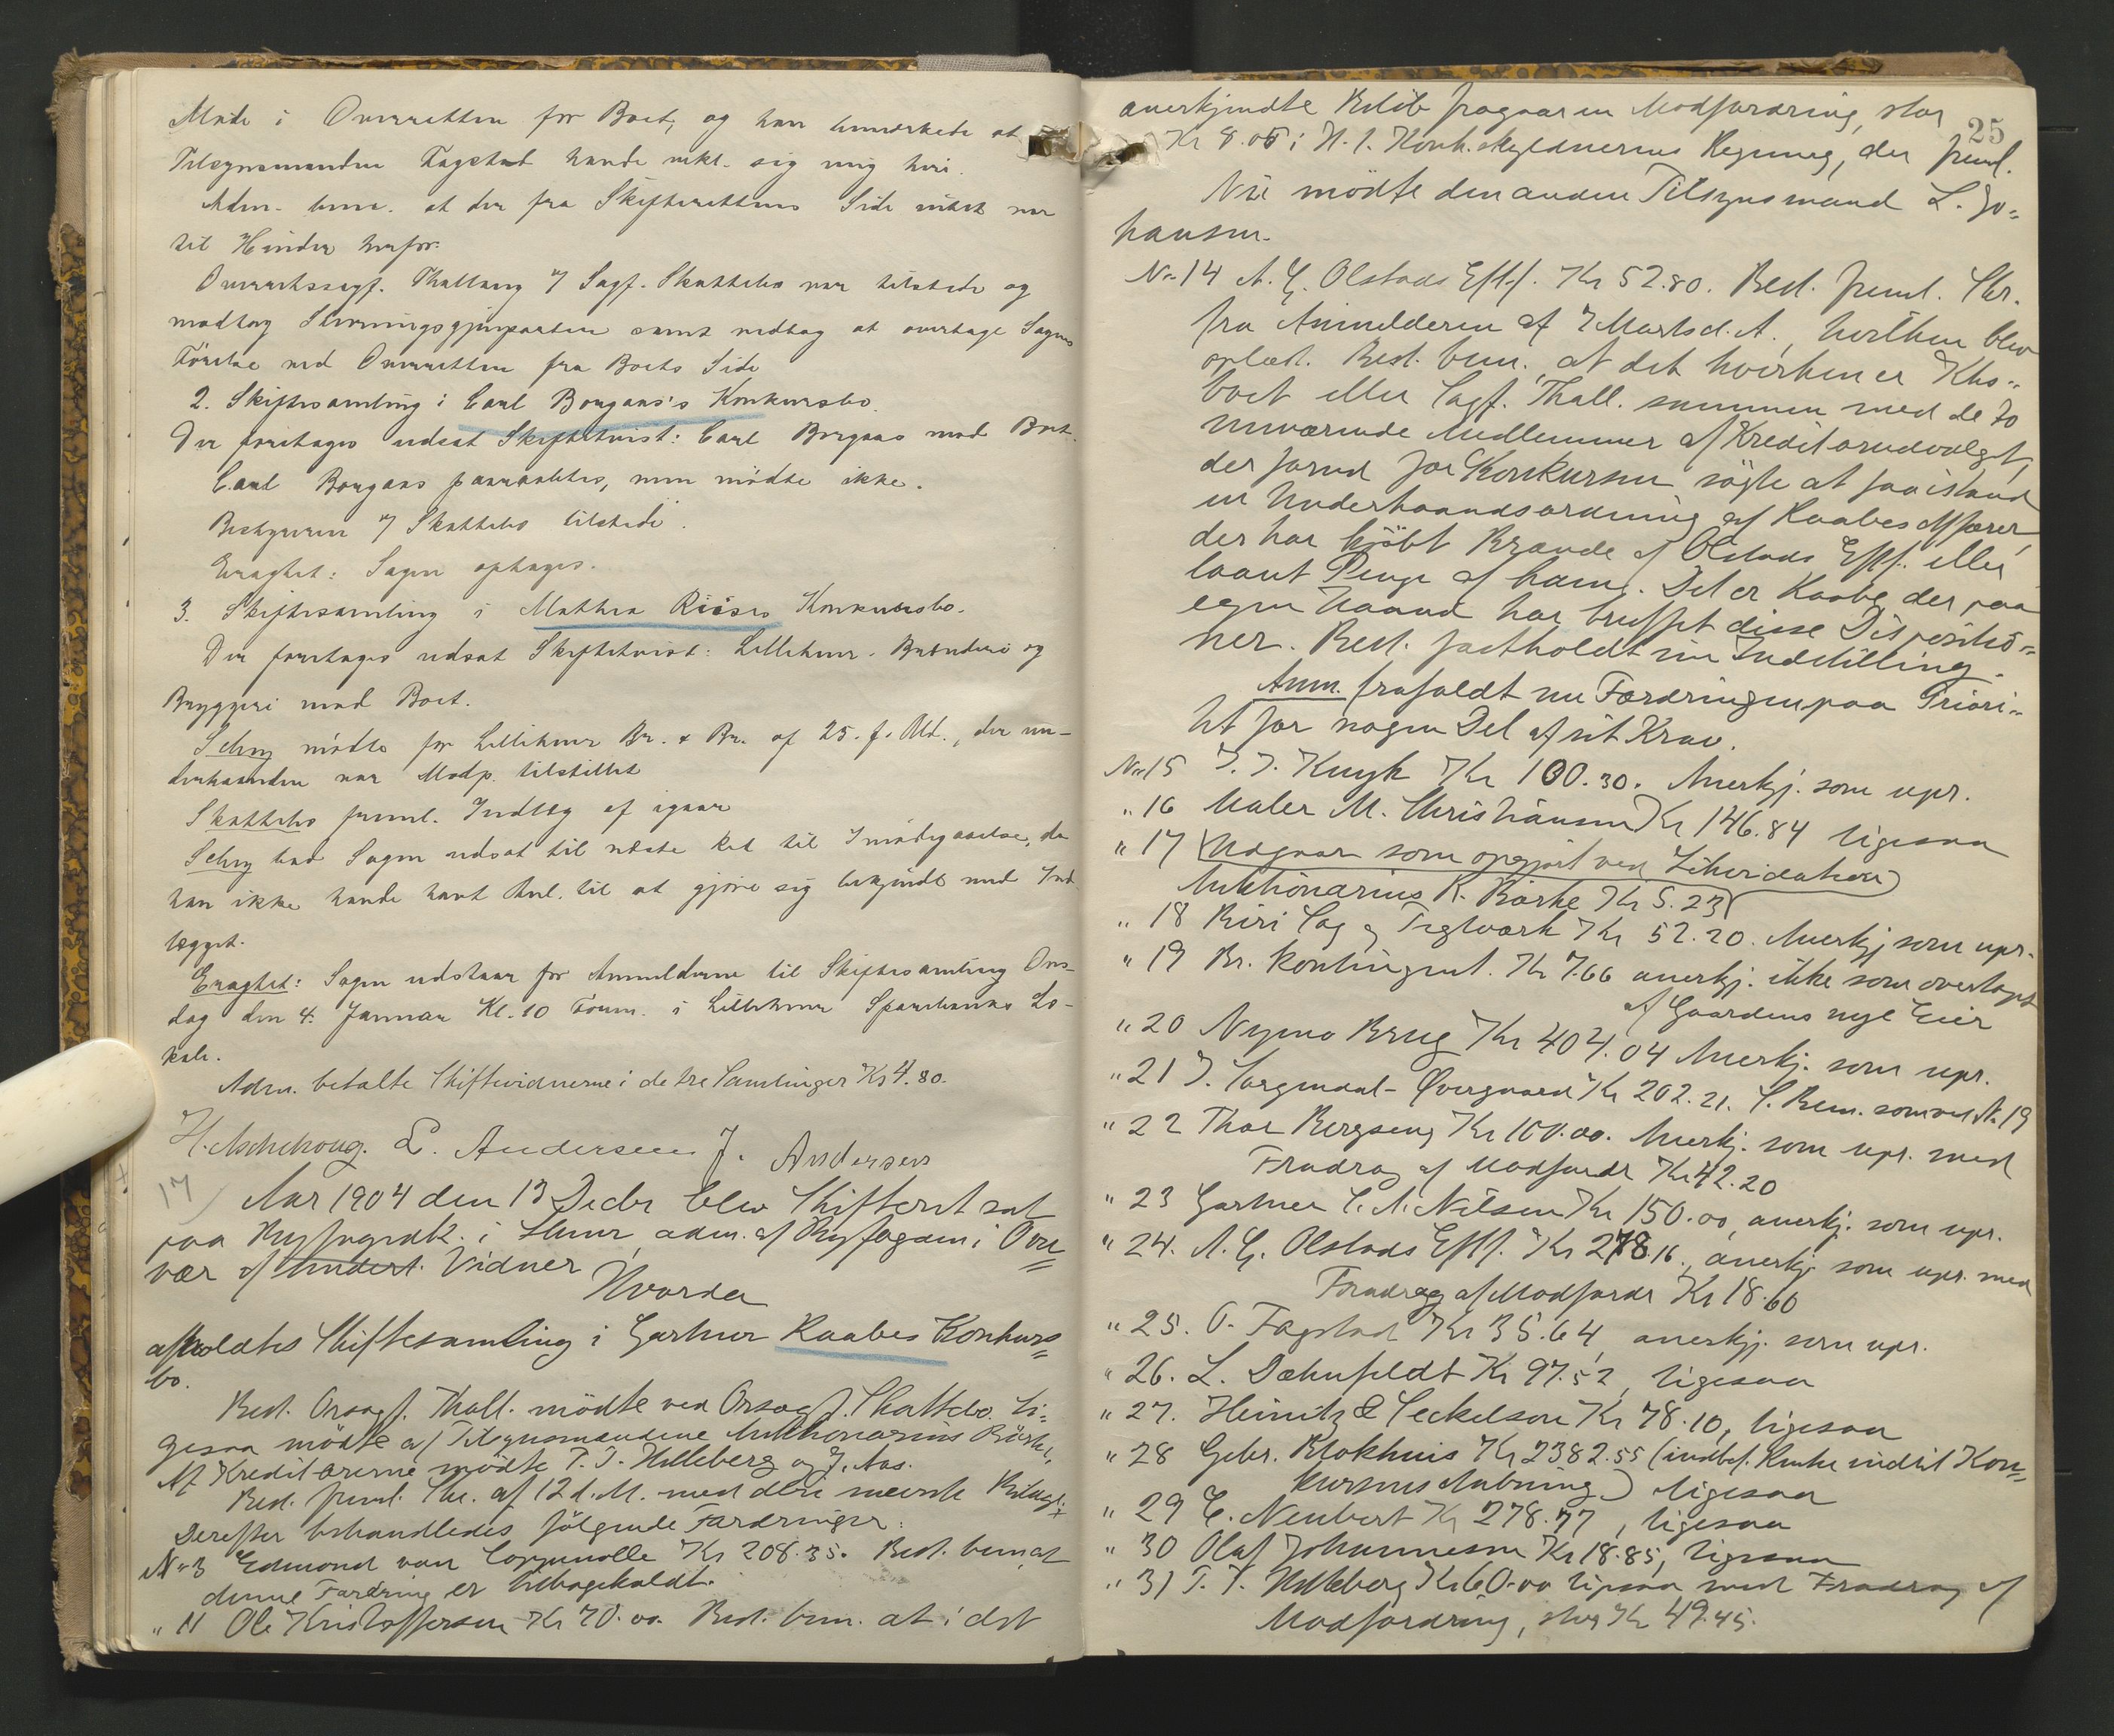 Møde i Overretten for Boet, og han bemærkede at
Tilsynsmanden Fagstad havde erkl. sig enig heri.
Adm. bem. at der fra Skifterettens Side intet var
til Hinder herfor.
Overretssagf. Thallaug v/ Sagf. Skattebo var tilstede og
modtog Stevningsgjenparten samt vedtog at overtage Sagens
Førelse ved Overretten fra Boets Side
2. Skiftesamling i Carl Borgaas's Konkursbo.
Der foretages udsat Skiftetvist: Carl Borgaas mod Boet.
Carl Borgaas paaraabtes, men mödte ikke.
Bestyreren v/ Skattebo tilstede.
Eragtet: Sagen optages.
3. Skiftesamling i Mathea Riises Konkursbo.
Der foretages udsat Skiftetvist: Lillehmr. Brænderi og
Bryggeri mod Boet.
Schey mödte for Lillehmr Br. & Br. af 25. f. Md., der un-
derhaanden var Modp. tilstillet
Skattebo freml. Indlæg af igaar
Schey bad Sagen udsat til næste Ret til Imødegaaelse, da
han ikke havde havt Anl. til at gjøre sig bekjendt med Ind-
lægget.
Eragtet: Sagen udstaar for Anmelderne til Skiftesamling Ons-
dag den 4. Januar Kl. 10 Form. i Lillehmr Sparebanks Lo-
kale.
Adm. betalte Skiftevidnerne i de tre Samlinger Kr 4.80.
H. Aschehoug. L. Andersen J. Andersen
17) Aar 1904 den 13 Decbr blev Skifteret sat
paa Byfogedk. i Lhmr, adm. af Byfogden i Over=
vær af undert. Vidner
Hvorda
afholdtes Skiftesamling i Gartner Raabes Konkurs=
bo.
Best. Orsagf. Thall. mödte ved Orsagf. Skattebo. Li=
gesaa mödte af Tilsynsmændene Auktionarius Börke,
Af Kreditorerne mödte T. T. Hilleberg og J. Aas.
Best. freml. Skr. af 12 d. M. med deri nævnte Bilag.
Derefter behandledes følgende Fordringer:
No 3 Edmond van Coppenolle Kr 208.35. Best. bem at
denne Fordring er tilbagekaldt.
" 11 Ole Kristoffersen Kr 70.00. Best. bem. at i det
25
anerkjendte Beløb fragaar en Modfordring, stor
Kr 8.05 i H. t. Konk.skyldnerens Regning, der freml.
Nu mödte den anden Tilsynsmand L. Jo=
hansen.
No 14 A. G. Olstads Eftf. Kr 52.80. Best. freml. Skr.
fra Anmelderen af 7 Marts d. A., hvilken blev
oplæst. Best. bem. at det hverken er Kks.-
boet eller Sagf. Thall. sammen med de to
nuværende Medlemmer af Kreditorudvalget,
der forud for Konkursen søgte at faa istand
en Underhaandsordning af Raabes Affærer,
der har kjöbt Brænde af Olstads Eftf. eller
laant Penge af ham. Det er Raabe der paa
egen Haand har truffet disse Dispositio=
ner. Best. fastholdt sin Indstilling.
Anm. frafaldt nu Fordringen paa Priori=
tet for nogen Del af sit Krav.
No 15 J. J. Kuyk Kr 130.30. Anerkj. som upr.
" 16 Maler M. Christiansen Kr 146.84 ligesaa
" 17 Udgaar som opgjort ved Likvidation
Auktionarius K. Börke Kr 5.23
" 18 Biri Sag og Teglværk Kr 52.20. Anerkj som upr.
" 19 Br. kontingent. Kr 7.66 anerkj. ikke som overtaget
af Gaardens nye Eier
" 20 Nymo Brug Kr 404.04 Anerkj. som upr.
" 21 J. Øvergaard Kr 202.21. S. Bem. som ved No 19
" 22 Thor Bergseng Kr 100.00. Anerkj. som upr. med
Fradrag af Modfordr Kr 42.20
" 23 Gartner C. A. Nilsen Kr 150.00, anerkj. som upr.
" 24. A. G. Olstads Eftf. Kr 278.16, anerkj som upr. med
Fradrag af Modfordr Kr 18.60
" 25. O. Fagstad Kr 35.64, anerkj. som upr.
" 26. L. Dæhnfeldt Kr 97.52, ligesaa
" 27. Heinitz & Seckelson Kr 78.10, ligesaa
" 28 Gebr. Blokhuis Kr 2382.55 (indbef. Renter indtil Kon=
kursens Aabning) ligesaa
" 29 E. Neubert Kr 278.77, ligesaa
" 30 Olaf Johannesen Kr 18.85, ligesaa
" 31 T. T. Hilleberg Kr 60.00 ligesaa med Fradrag af
Modfordring, stor Kr 49.45.